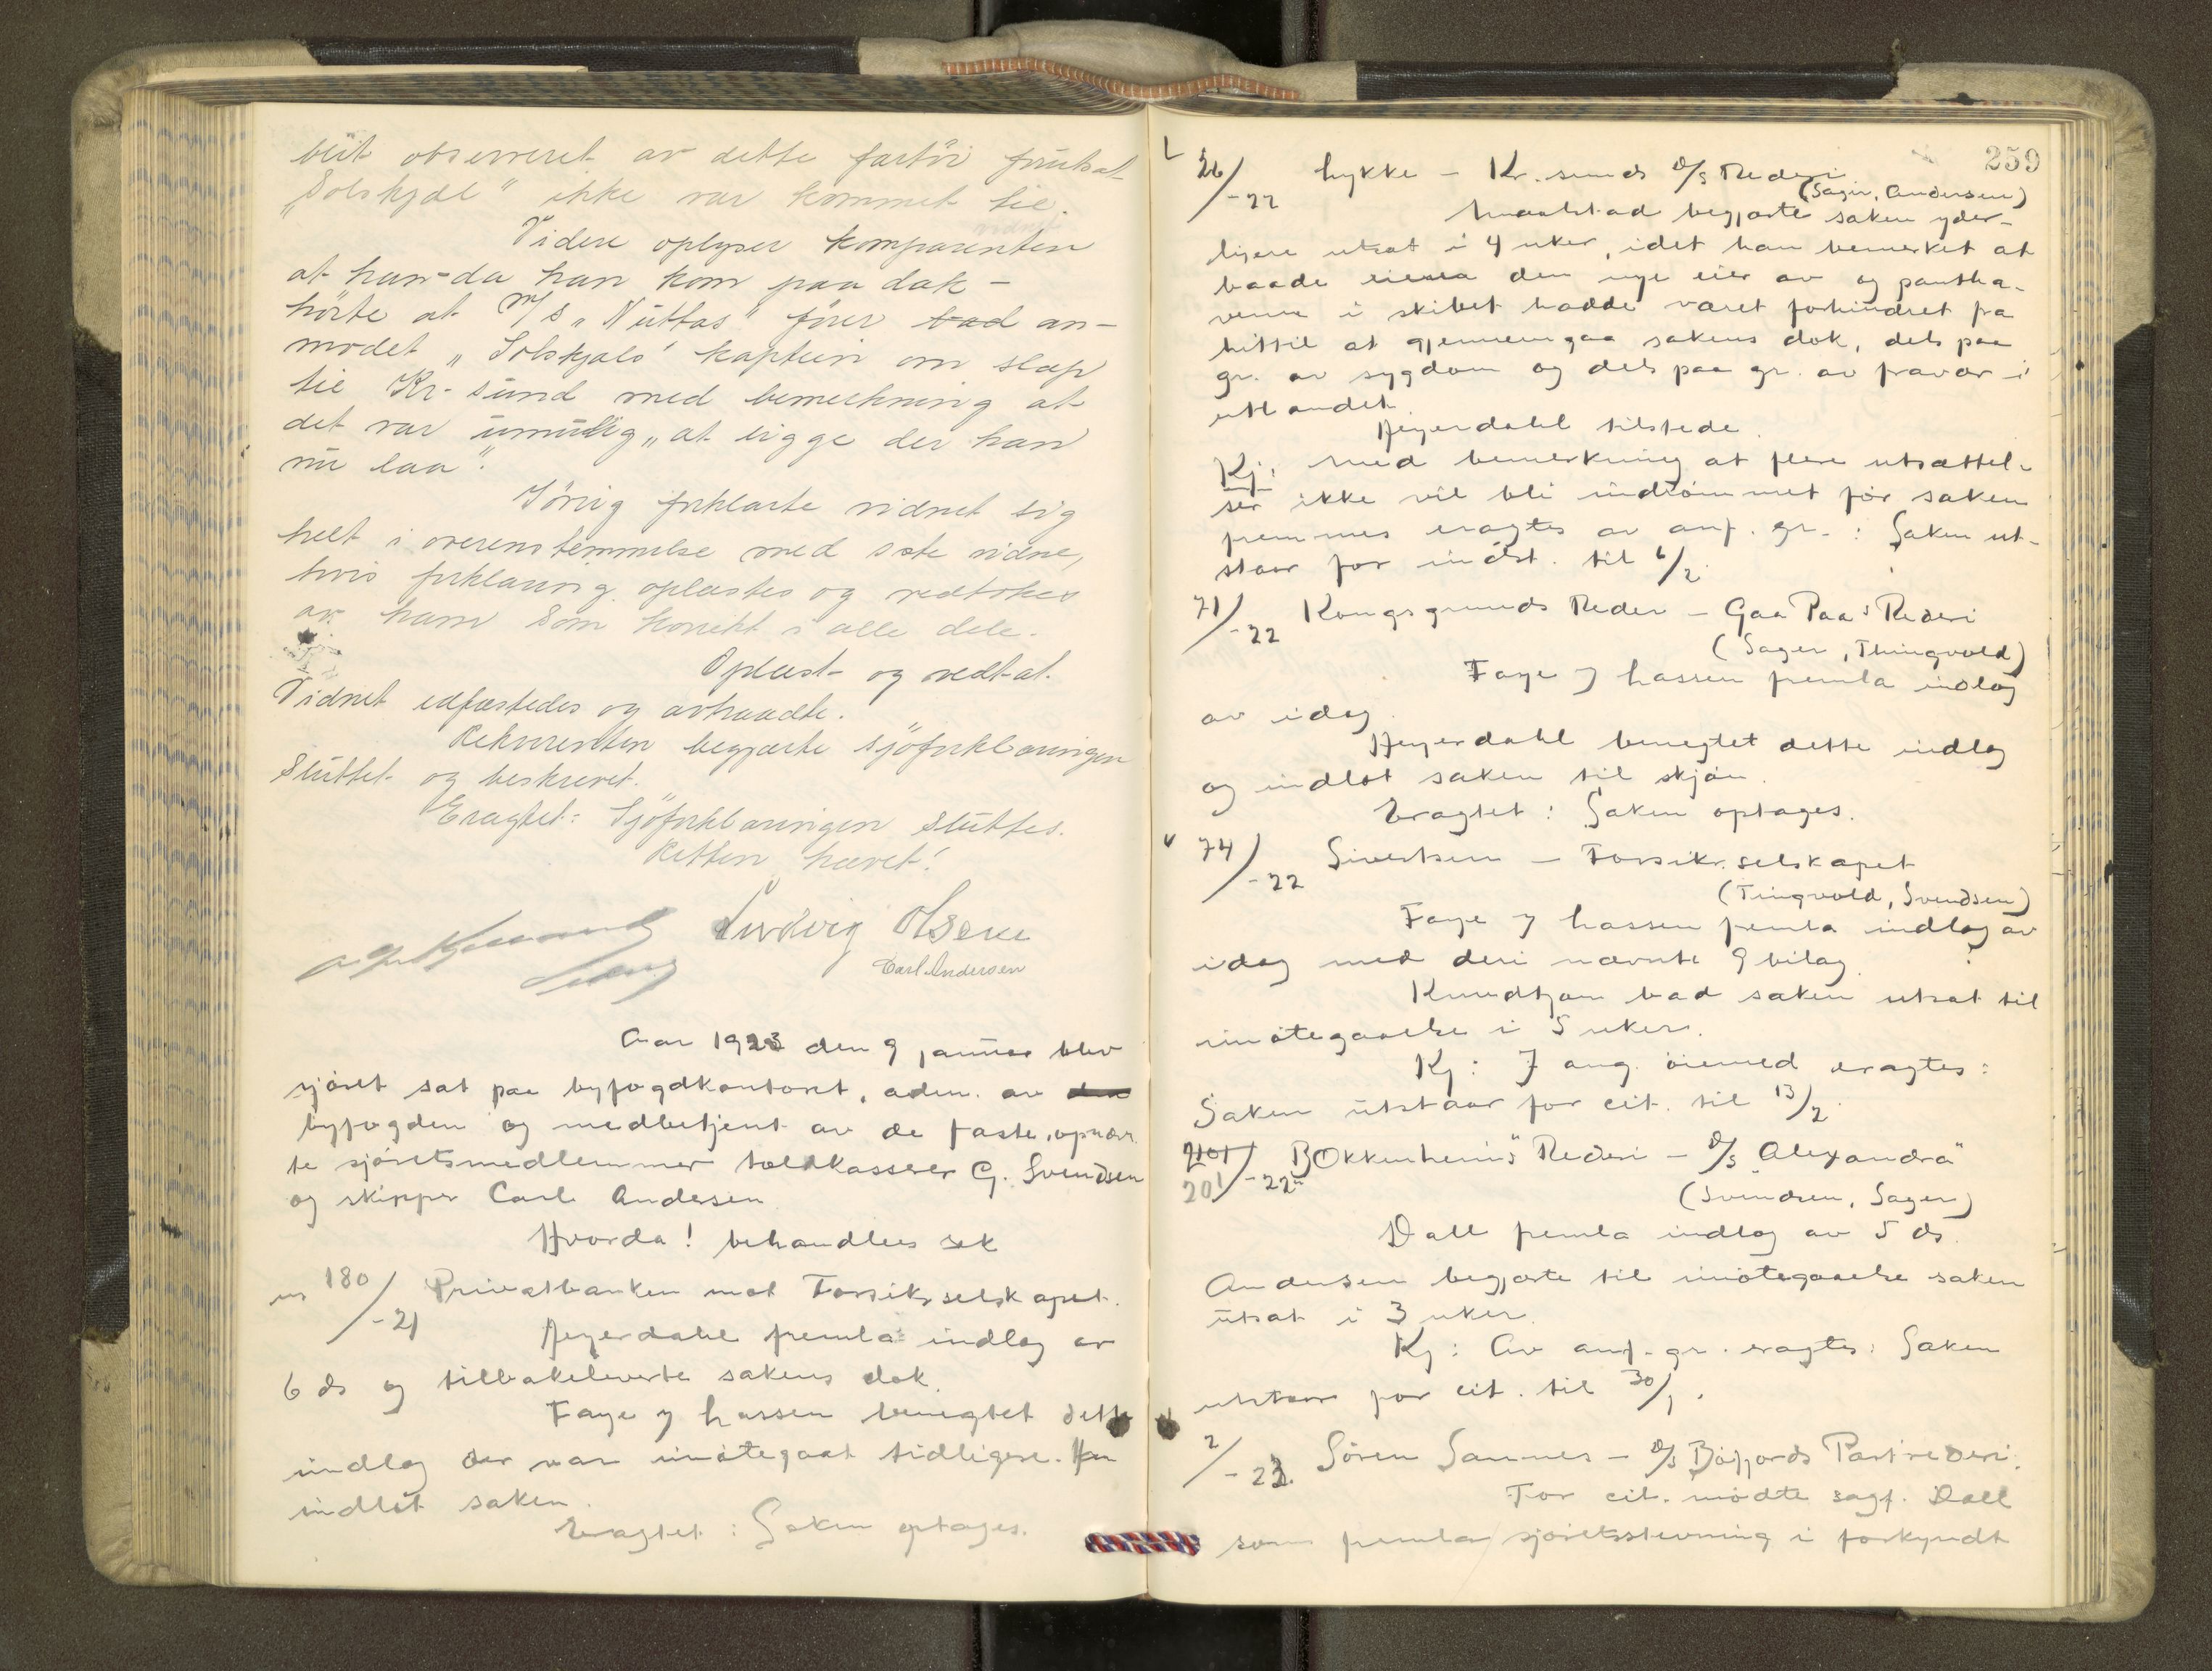 blit observeret av dette fartöi forutsat
"Solskjæl" ikke var kommet til.
vidnet
Videre oplyser komparenten
at han - da han kom paa dæk -
hörte at M/S "Nuttas" förer bad an-
modet "Solskjæls" kaptein om slæp
til Kr.sund med bemerkning at
det var umulig "at ligge der han
nu laa".
Iövrig forklarte vidnet sig
helt i overenstemmelse med siste vidne,
hvis forklaring oplæstes og vedtokes
av ham som korrekt i alle dele.
Oplæst og vedtat.
Vidnet edfæstedes og avtraadte.
Rekvirenten begjærte sjöforklaringen
sluttet og beskrevet.
Eragtet: Sjöforklaringen sluttes.
Retten hævet!
Ludvig Olsen
Carl Andersen
Aar 1923 den 9 januar blev
sjöret sat paa byfogdkontoret, adm. av
byfogden og medbetjent av de faste, opnævn
te sjöretsmedlemmer toldkasserer G. Svendsen
og skipper Carl Andersen
Hvorda! behandles sak
180/-21 Privatbanken mot Forsikr.selskapet.
Heyerdahl fremla indlæg av
6 ds og tilbakeleverte sakens dok.
Faye y Lassen benegtet dette
indlæg der var imötegaat tidligere. Han
indlot saken.
Eragtet: Saken optages.
259
26/-22 Lykke - Kr.sunds D/S Rederi
(Sager, Andersen)
begjærte saken yder-
ligere utsat i 4 uker, idet han bemerket at
baade den nye eier av og pantha-
verne i skibet hadde været forhindret fra
hittil at gjennemgaa sakens dok, dels paa
gr. av sygdom og dels paa gr. av fravær i
utlandet.
Heyerdahl tilstede.
Kj: Med bemerkning at flere utsættel-
ser ikke vil bli indrömmet för saken
fremmes eragtes av anf. gr.: Saken ut-
staar for indst. til 6/2.
71/-22 Kongsgrunds Reder - Gaa Paa's Rederi
(Sager, Thingvold)
Faye y Lassen fremla indlæg
av idag.
Heyerdahl benegtet dette indlæg
og indlot saken til skjön.
Eragtet: Saken optages.
74/-22 Sivertsen - Forsikr.selskapet
(Tingvold, Svendsen)
Faye y Lassen fremla indlæg av
idag med deri nævnte 9 bilag.
Knudtzon bad saken utsat til
imötegaaelse i 5 uker.
Kj: I ang. öiemed eragtes:
Saken utstaar for cit. til 13/2.
201/-22 "Bokkenheim's" Rederi - D/S "Alexandra"
201
(Svendsen, Sager)
Dall fremla indlæg av 5 ds.
Andersen begjærte til imötegaaelse saken
utsat i 3 uker.
Kj: Av anf. gr. eragtes: Saken
utstaar for cit. til 30/1.
2/-23. Sören Sannes - D/S Böfjords Partrederi.
For cit. mödte sagf. Dall
som fremla sjöretsstevning i forkyndt